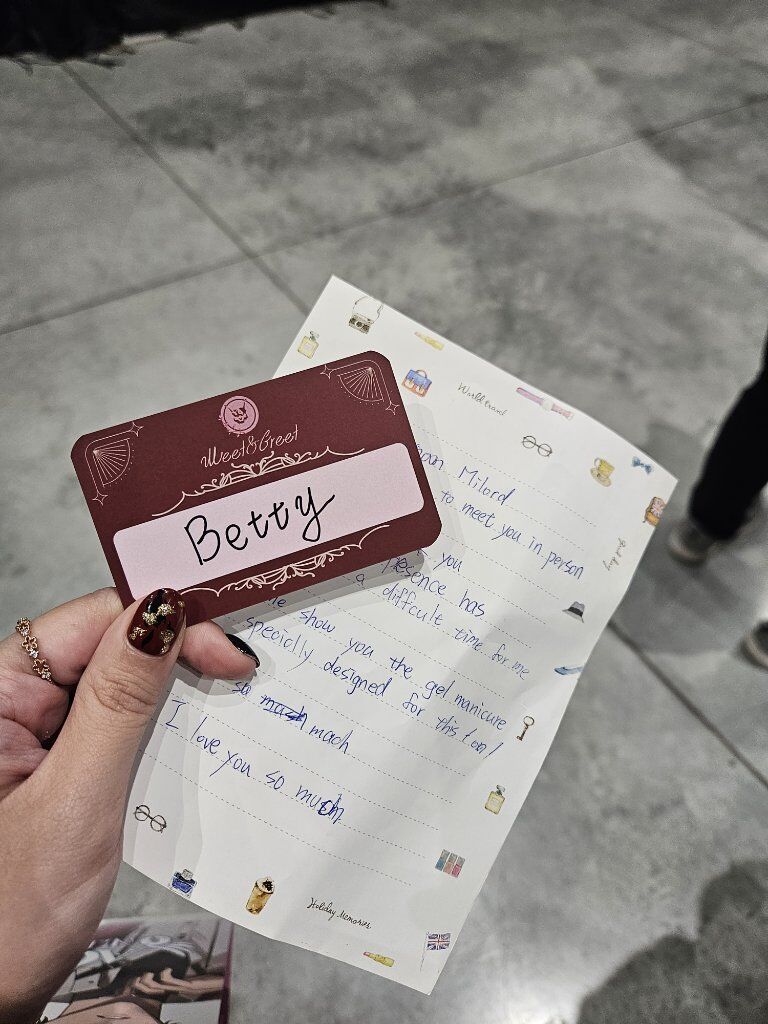 Meet&Greet
Betty
World travel
Milord
to meet you in person
you
presence has
a difficult time for me
show you the gel manicure
specially designed for this tour!
so mach
I love you so much
Holiday Memories